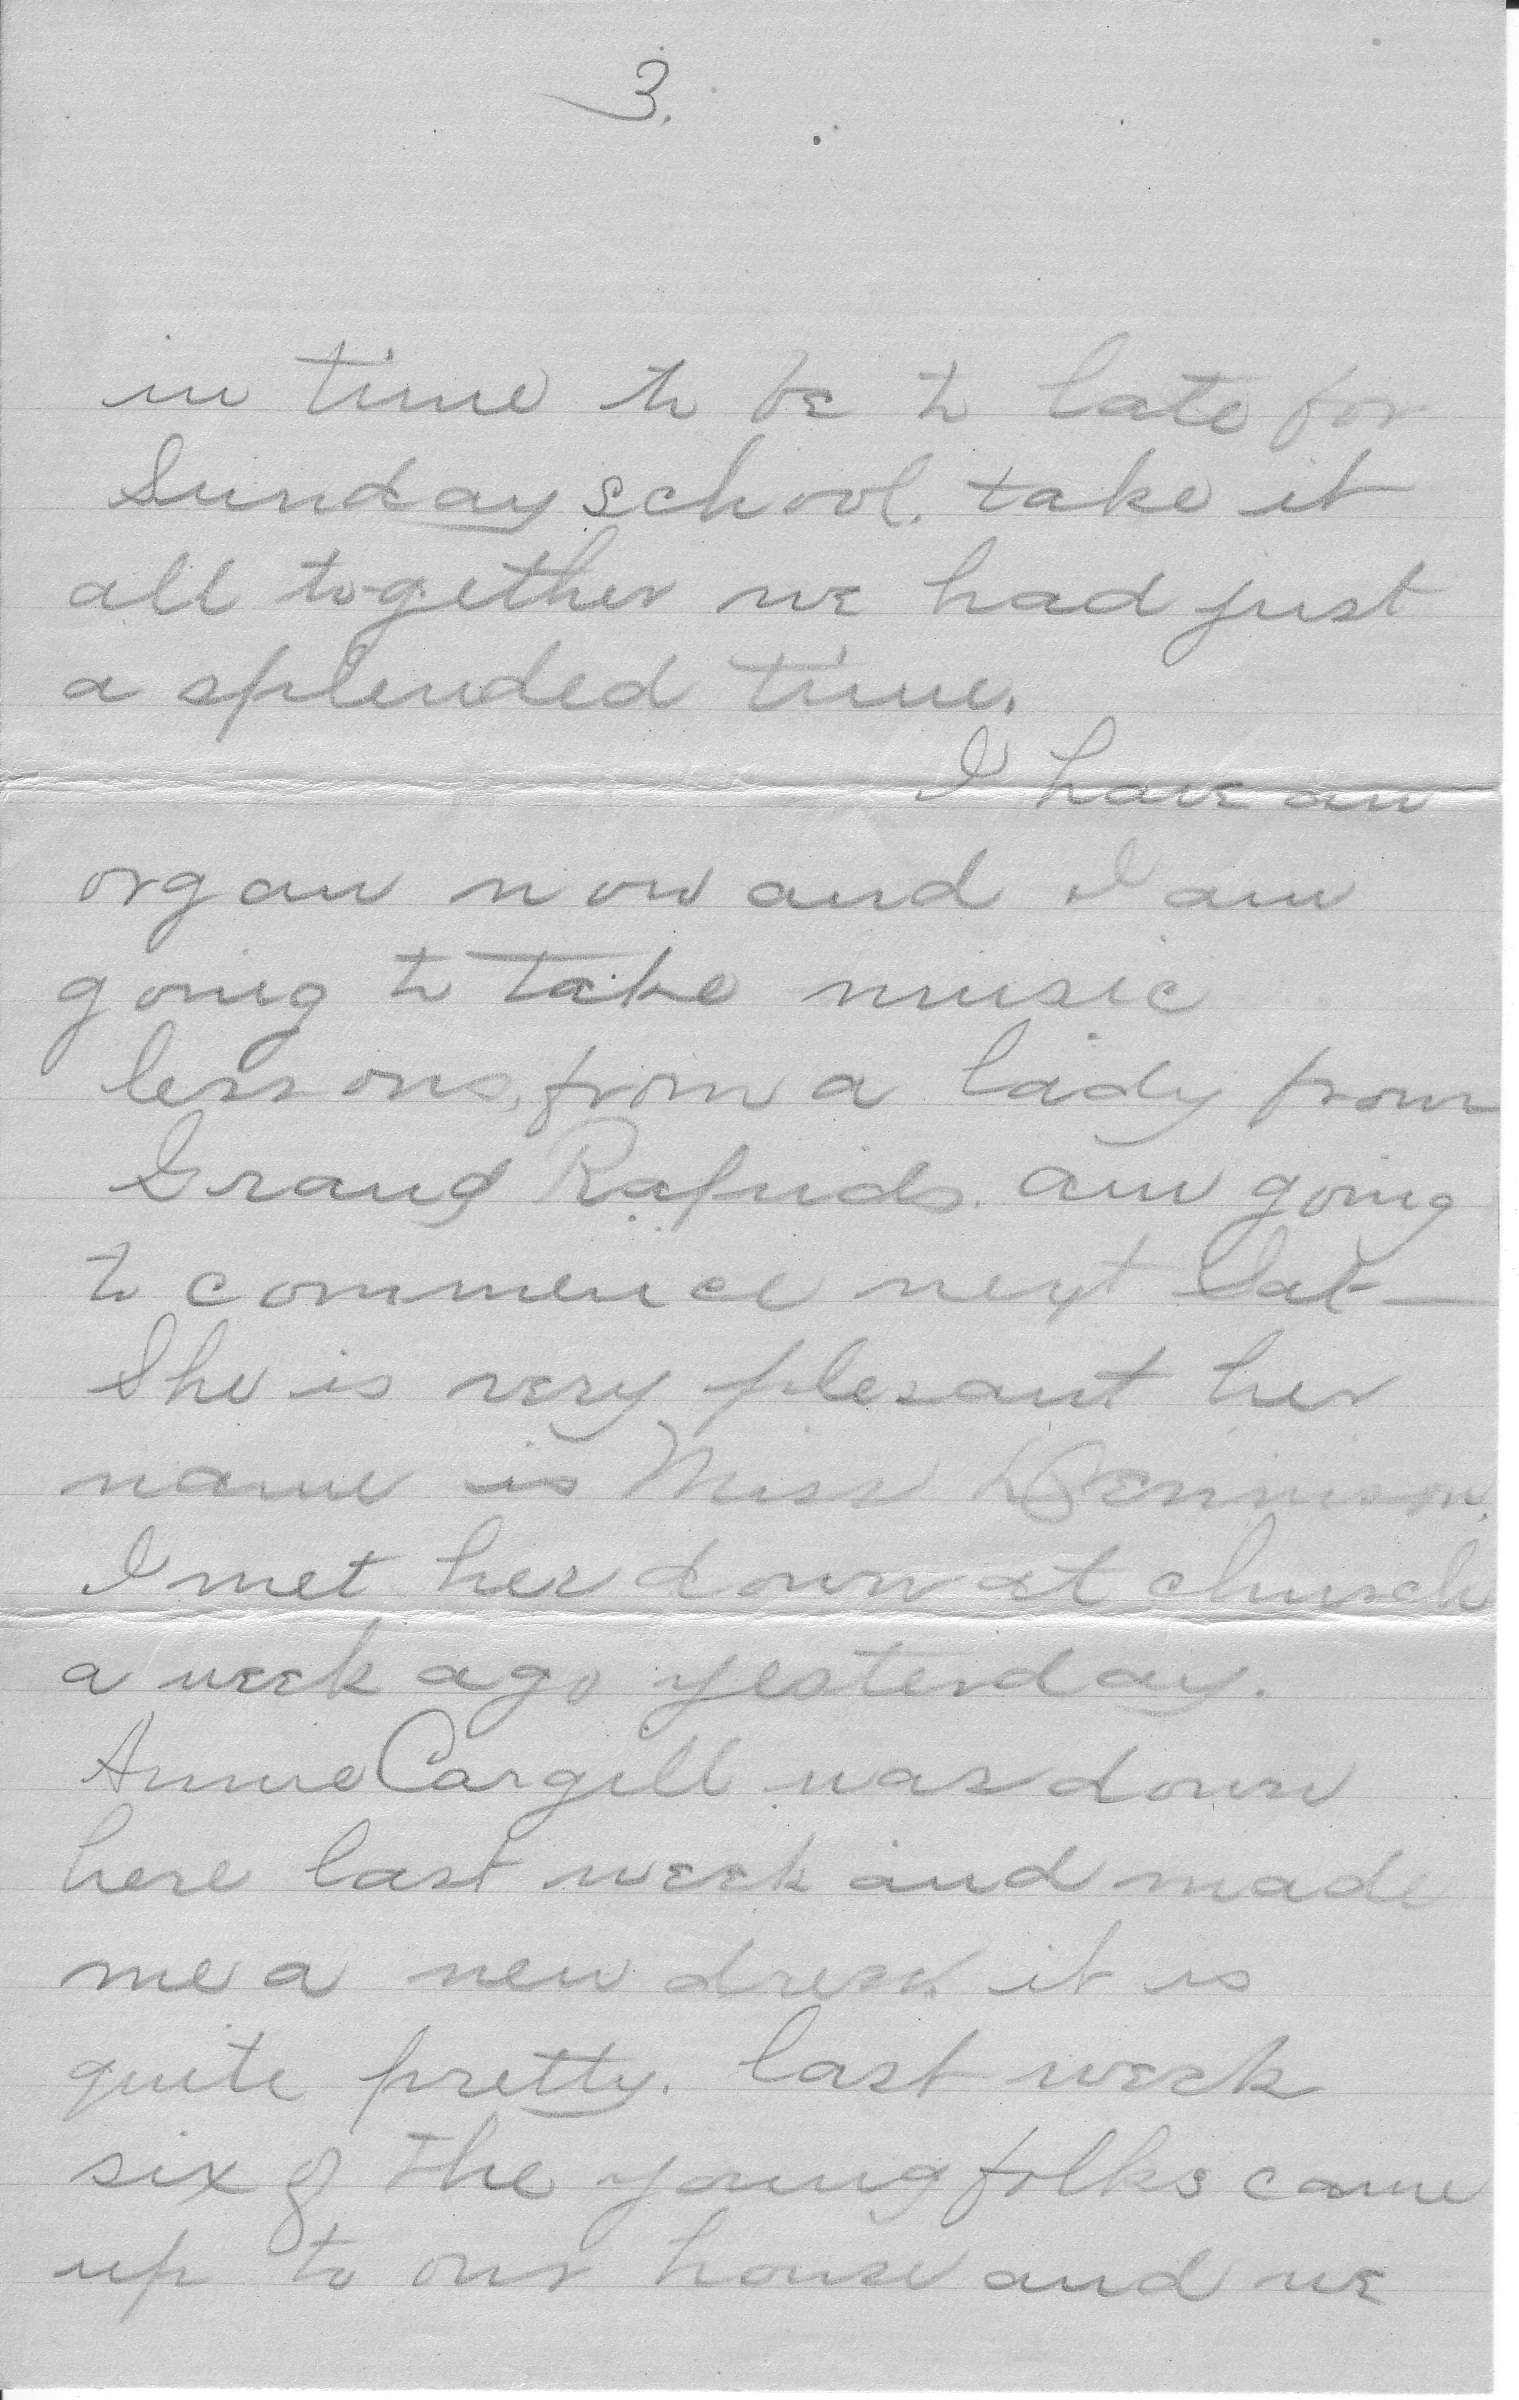 3.
in time to be to late for
Sunday school. take it
all together we had just
a splended time.
I have an
organ now and I am
going to take music
lessons, from a lady from
Grand Rapids. am going
to commence next Sat—
She is very plesant her
name is Miss Dennison.
I met her down at church
a week ago yesterday.
Annie Cargill was down
here last week and made
me a new dress it is
quite pretty. last week
six of the young folks came
up to our house and we